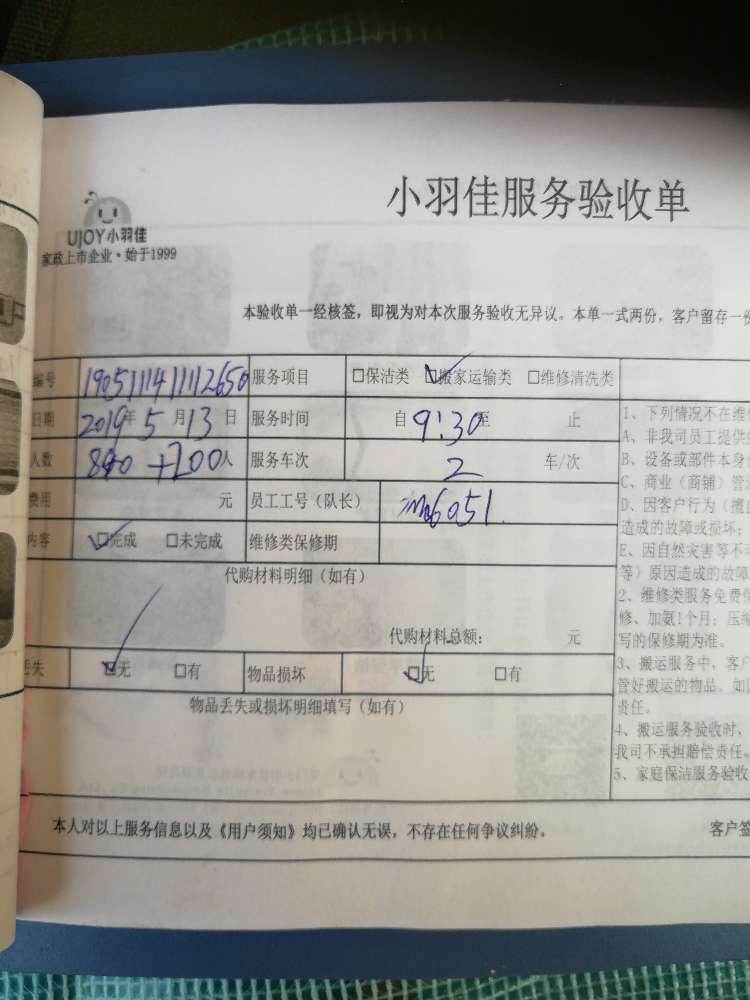 小羽佳服务验收单
UJOY小羽佳
家政上市企业·始于1999
本验收单一经核签，即视为对本次服务验收无异议。本单一式两份，客户留存一份
编号 190511141112650 服务项目 □保洁类 ☑搬家运输类 □维修清洗类
日期 2019年5月13日 服务时间 自 9:30 至 止
人数 800+200人 服务车次 2 车/次
费用 元 员工工号（队长） 6051
内容 ☑完成 □未完成 维修类保修期
代购材料明细（如有）
代购材料总额： 元
丢失 ☑无 □有 物品损坏 ☑无 □有
物品丢失或损坏明细填写（如有）
1、下列情况不在维
A、非我司员工提供
B、设备或部件本身
C、商业（商铺）管
D、因客户行为（擅
造成的故障或损坏；
E、因自然灾害等不
等）原因造成的故障
2、维修类服务免费保
修、加氨1个月；压缩
写的保修期为准。
3、搬运服务中，客户
管好搬运的物品。如
责任。
4、搬运服务验收时，
我司不承担赔偿责任。
5、家庭保洁服务验收
本人对以上服务信息以及《用户须知》均已确认无误，不存在任何争议纠纷。 客户签